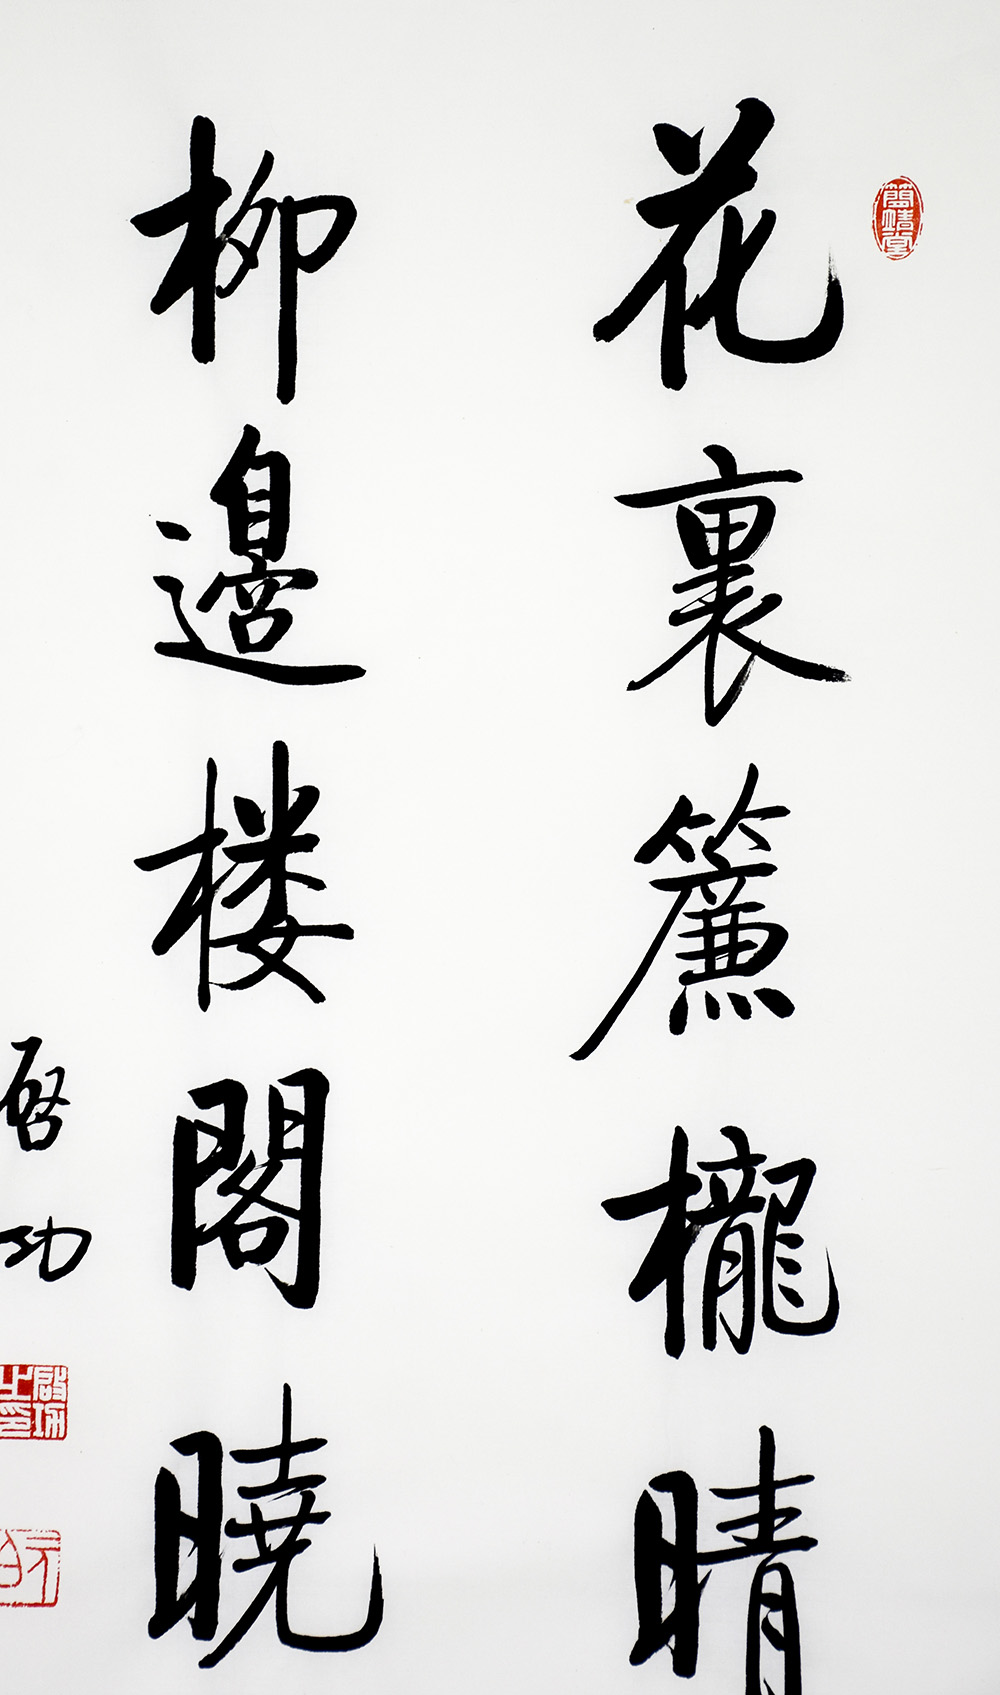 花裏簾櫳晴
柳邊楼閣曉
啓功
簡靖堂
啟功之印